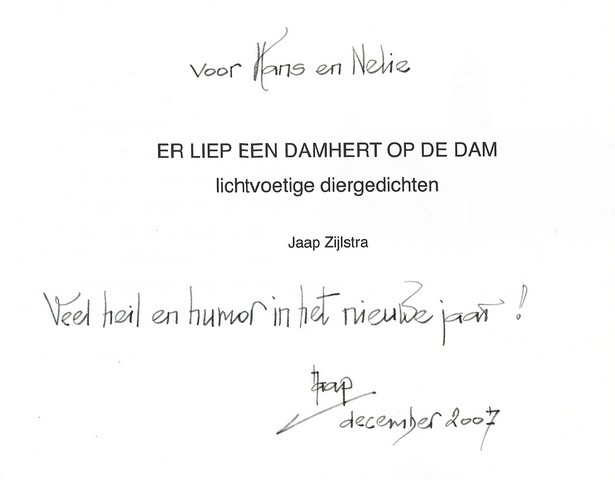 voor Hans en Nelie
ER LIEP EEN DAMHERT OP DE DAM
lichtvoetige diergedichten
Jaap Zijlstra
Veel heil en humor in het nieuwe jaar!
Jaap
december 2007